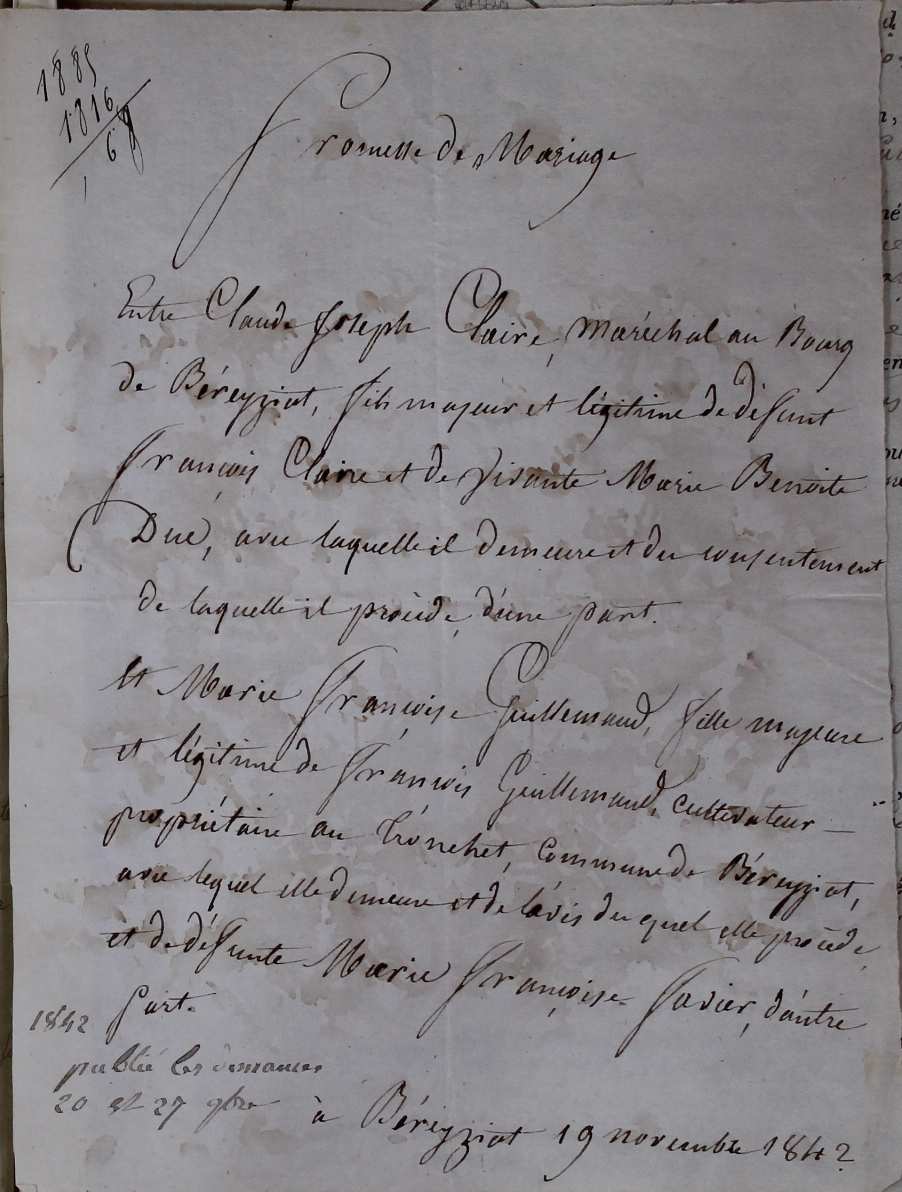 1885
1816
69
Promesse de Mariage
Entre Claude Joseph Claire, Maréchal au Bourg
de Béreyziat, fils majeur et légitime de défunt
François Claire et de vivante Marie Benoite
Duc, avec laquelle il demeure et du consentement
de laquelle il procède, d'une part.
Et Marie Françoise Guillemaud, fille majeure
et légitime de François Guillemaud, cultivateur
propriétaire au Tronchet, commune de Béreyziat,
avec lequel elle demeure et de l'avis du quel elle procède,
et de défunte Marie Françoise Favier, d'autre
part.
1842
publié les dimanches
20 et 27 9bre
à Béreyziat 19 novembre 1842